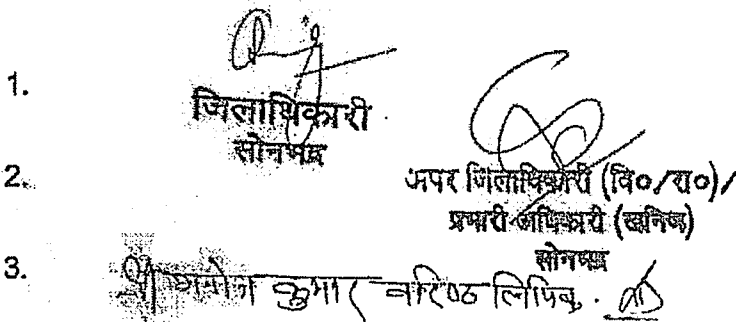 1.
जिलाधिकारी
सोनभद्र
2.
अपर जिलाधिकारी (वि०/रा०)/
प्रभारी अधिकारी (खनिज)
सोनभद्र
3. श्री कुमार वरिष्ठ लिपिक.